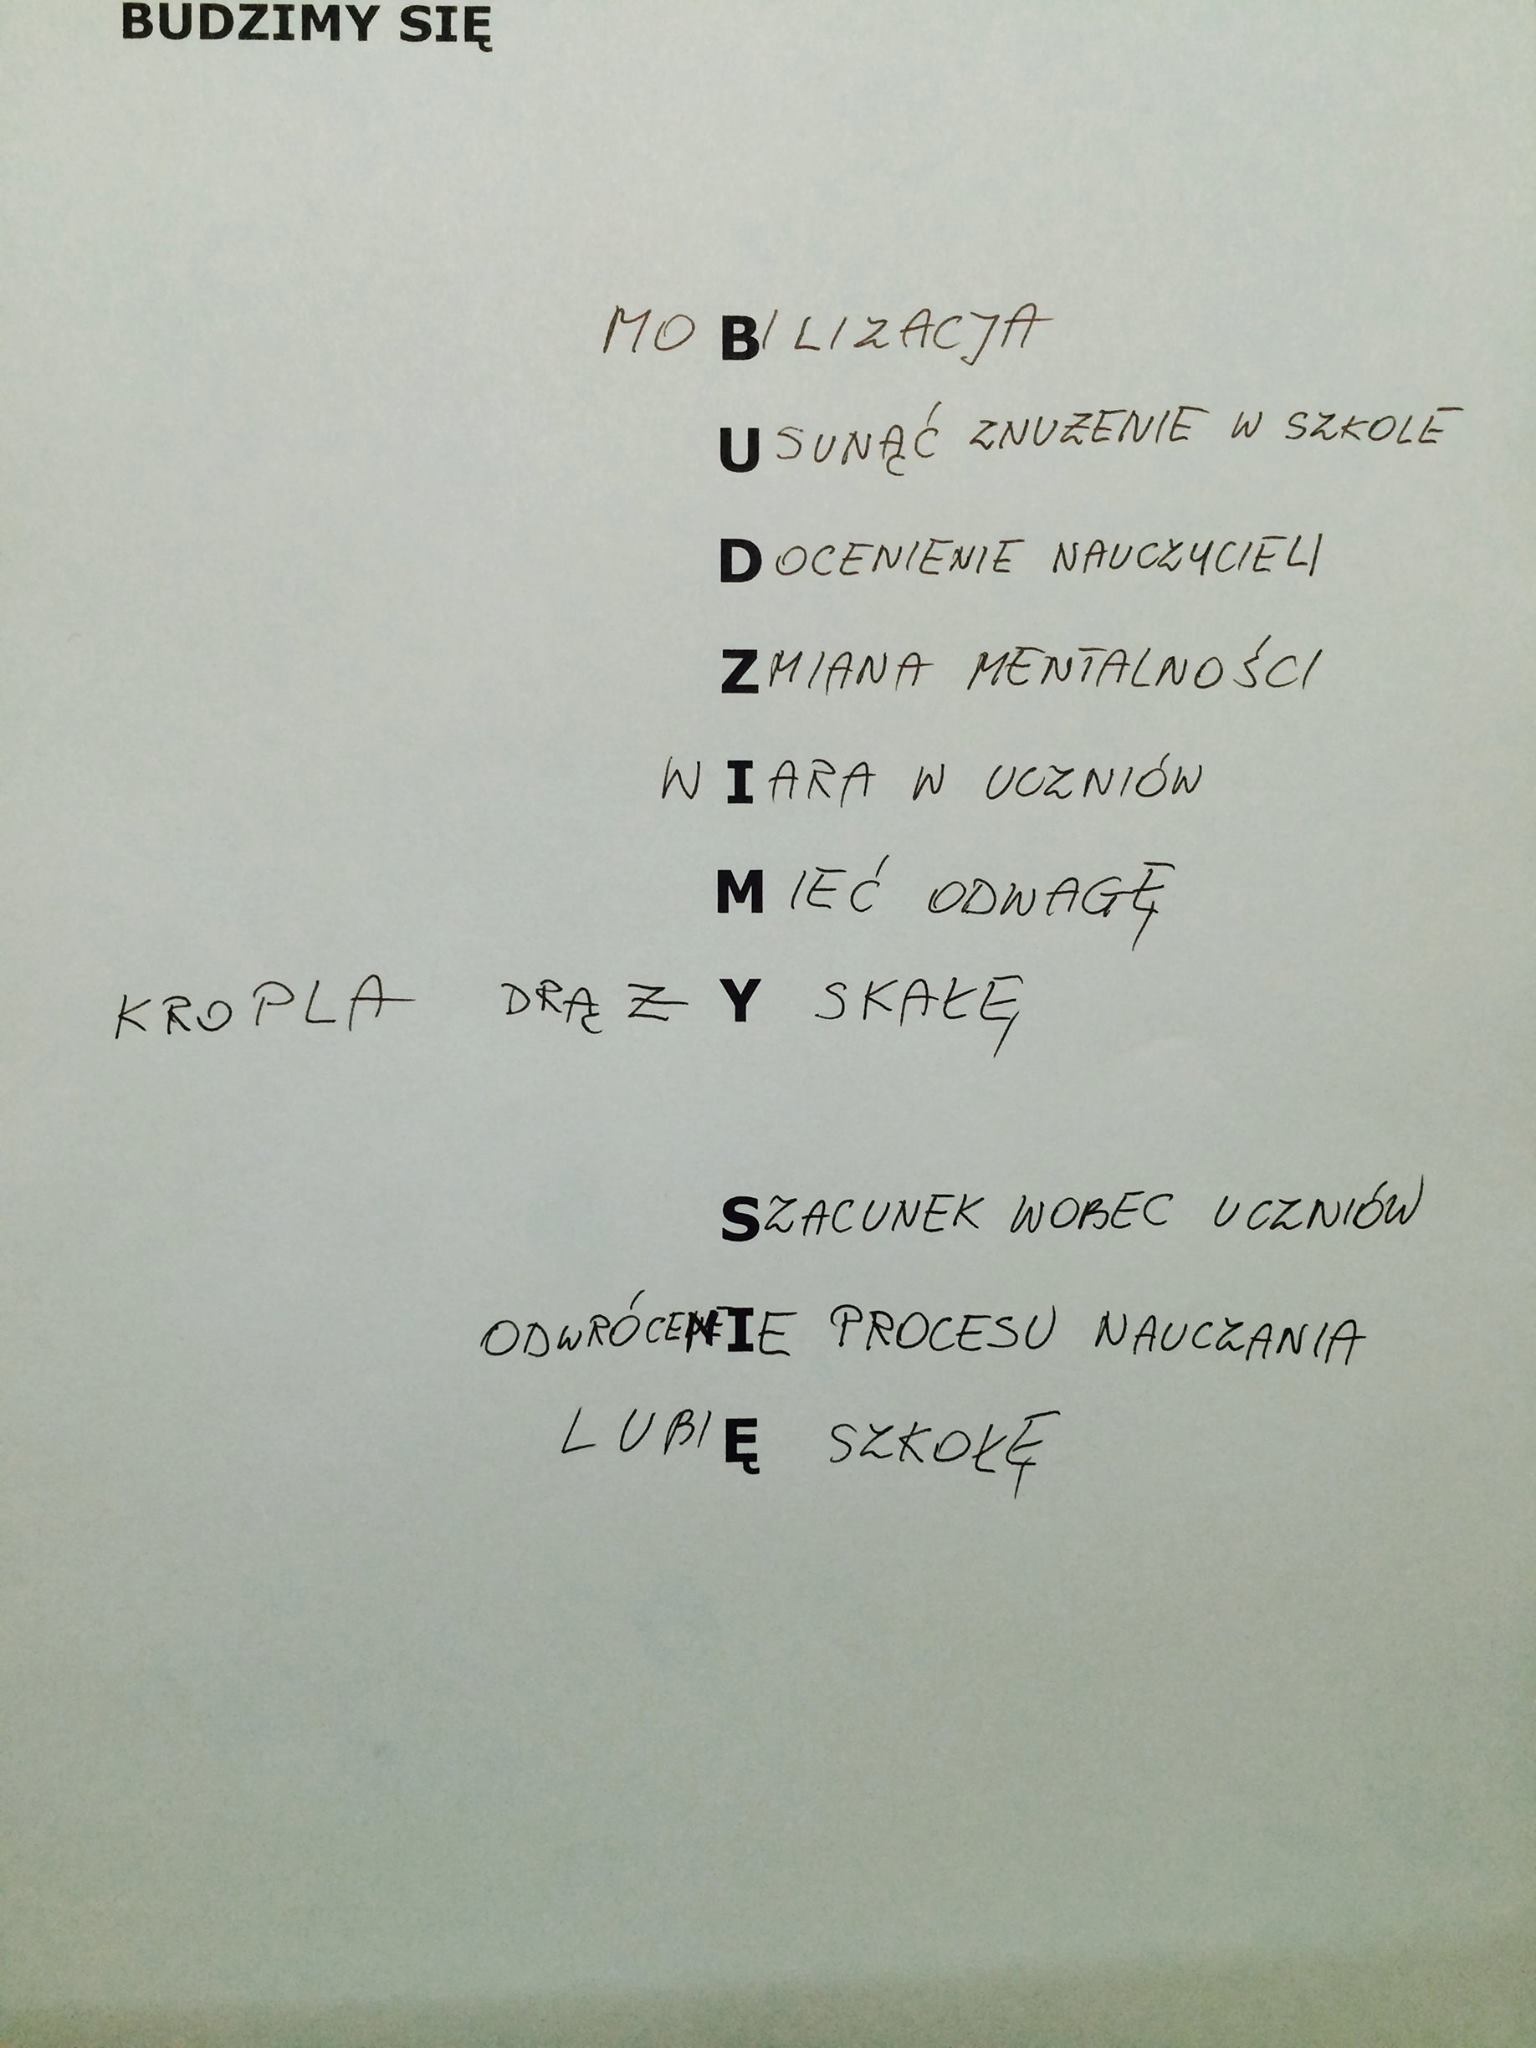 BUDZIMY SIĘ
MOBILIZACJA
USUNĄĆ ZNUŻENIE W SZKOLE
DOCENIENIE NAUCZYCIELI
ZMIANA MENTALNOŚCI
WIARA W UCZNIÓW
MIEĆ ODWAGĘ
KROPLA DRĄŻY SKAŁĘ
SZACUNEK WOBEC UCZNIÓW
ODWRÓCENIE PROCESU NAUCZANIA
LUBIĘ SZKOŁĘ